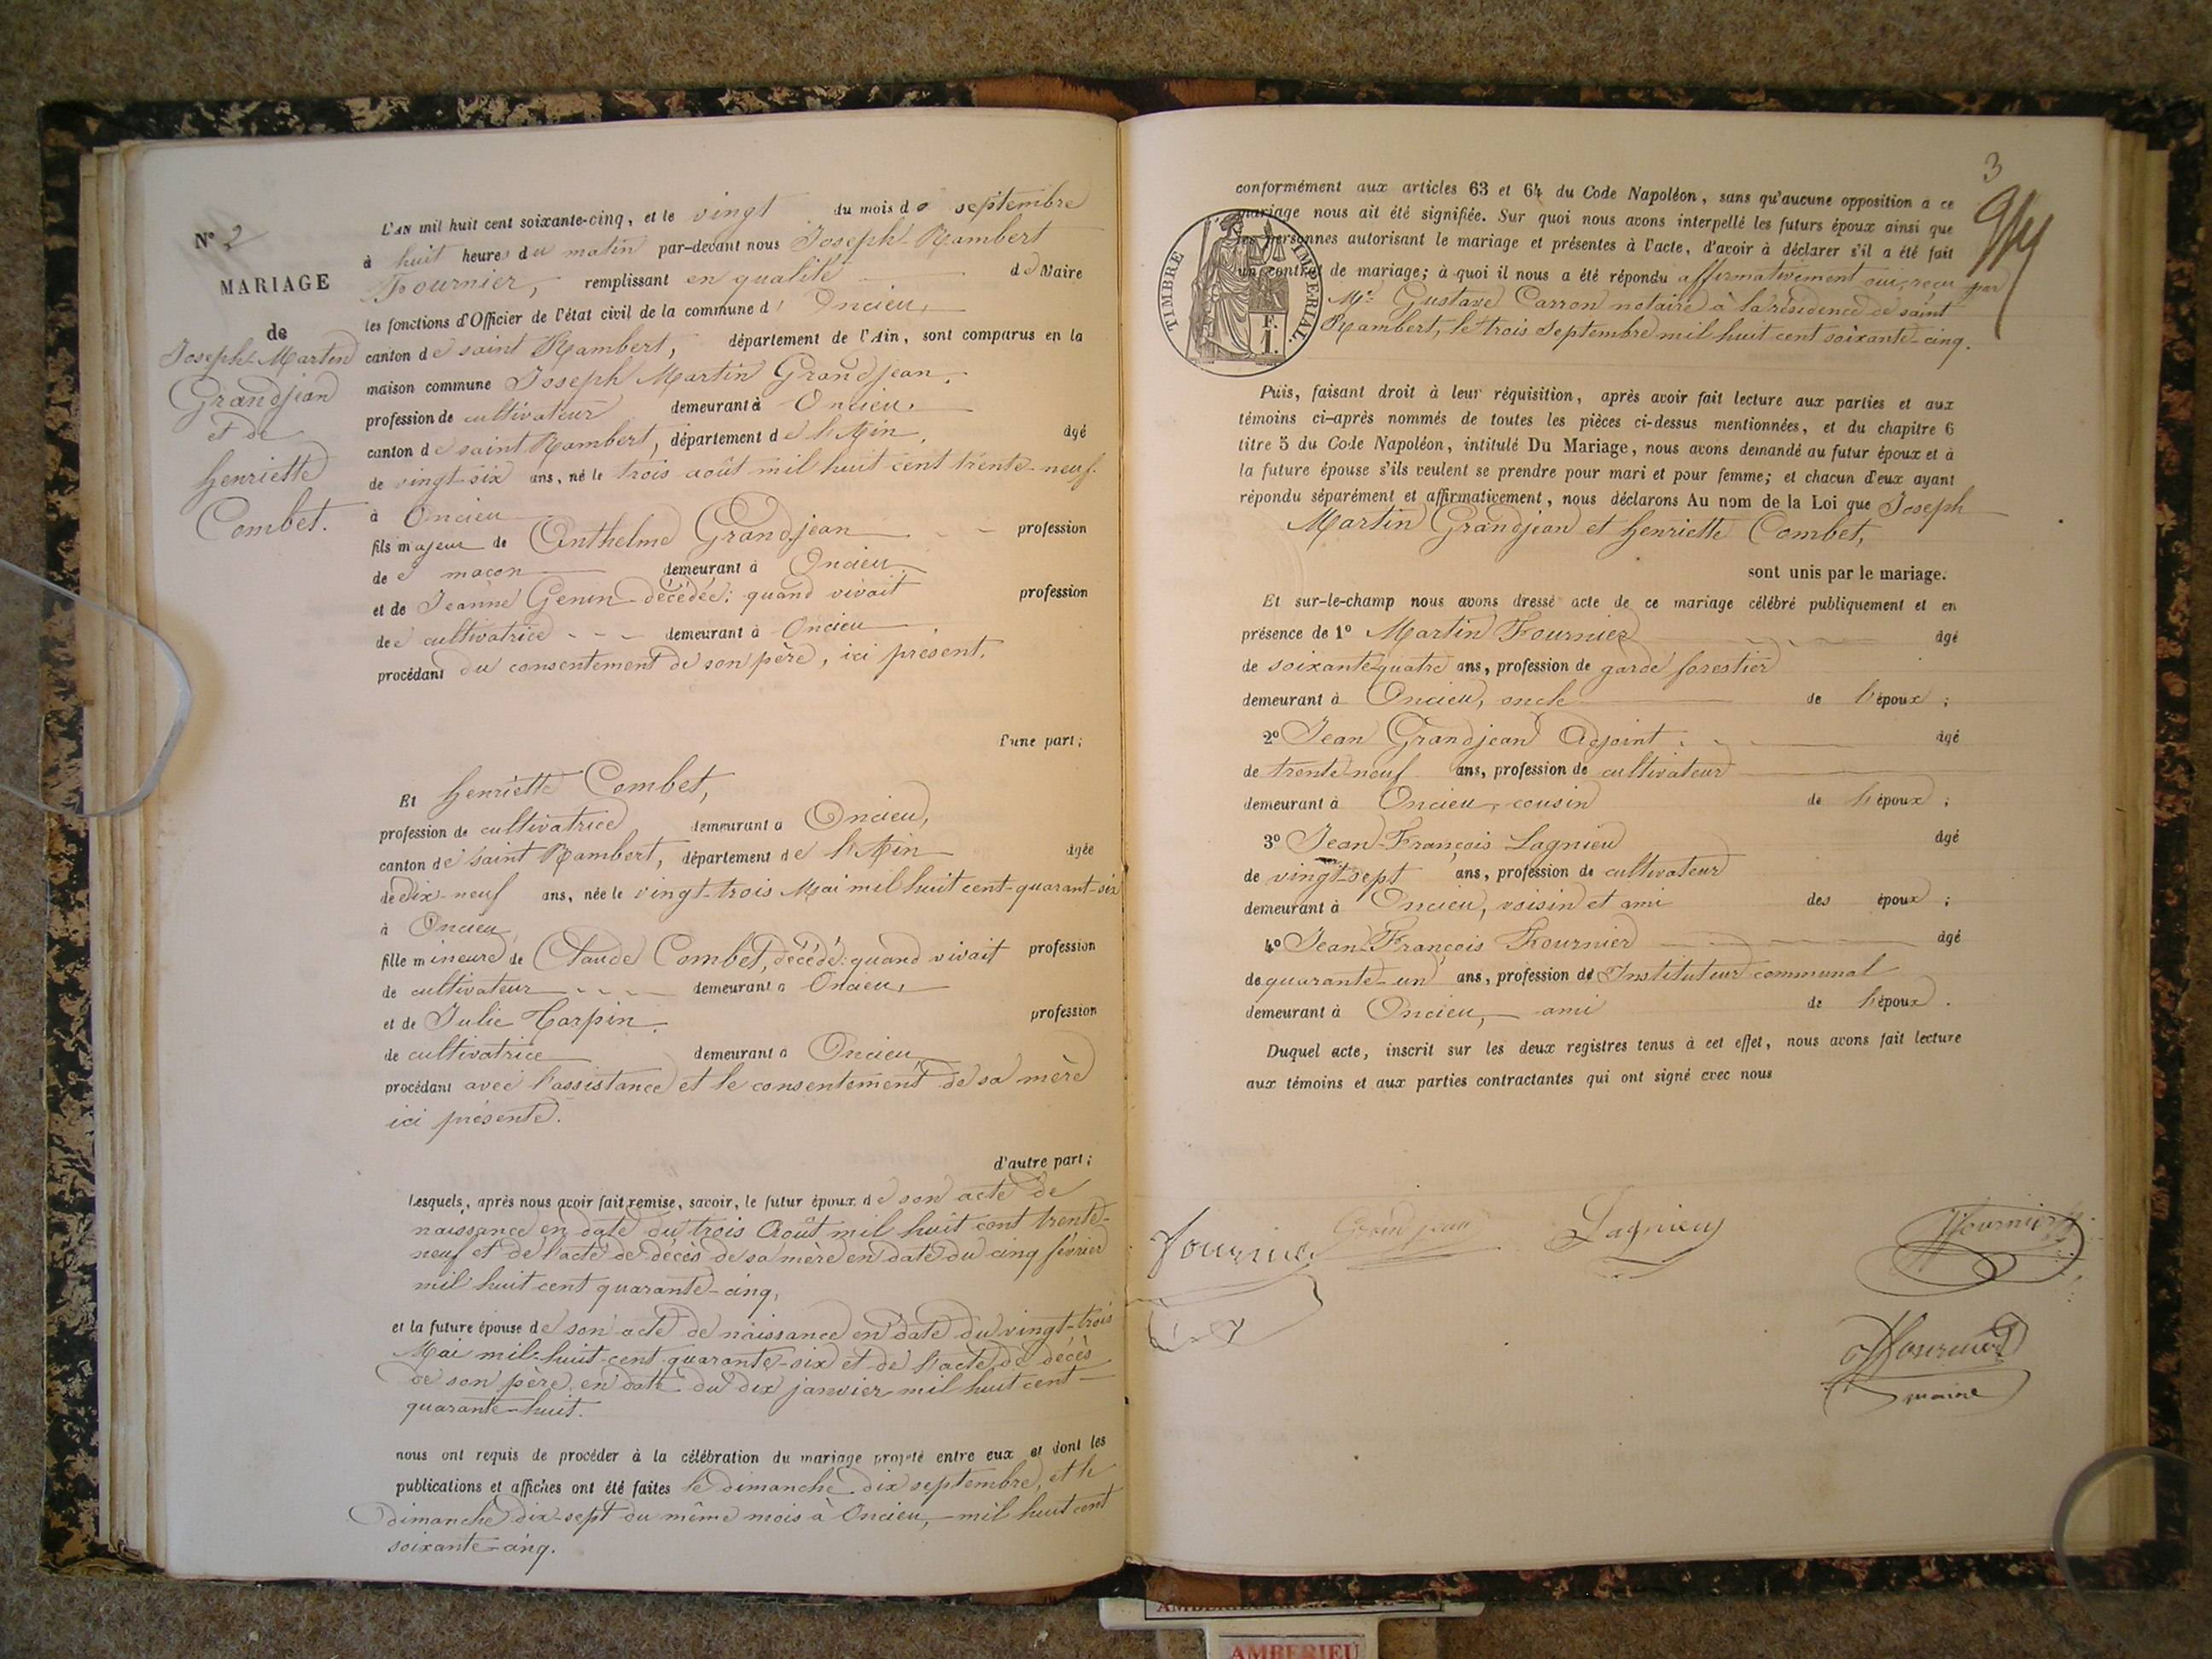 N° 2
MARIAGE
de
Joseph-Martin
Grandjean
et de
henriette
Combet.
L'AN mil huit cent soixante-cinq, et le vingt du mois de septembre
à huit heures du matin par-devant nous Joseph-Rambert
Fournier, remplissant en qualité de Maire
les fonctions d'Officier de l'état civil de la commune d'Oncieu,
canton de saint Rambert, département de l'Ain, sont comparus en la
maison commune Joseph Martin Grandjean,
profession de cultivateur demeurant à Oncieu,
canton de saint Rambert, département de l'Ain, âgé
de vingt-six ans, né le trois août mil huit cent trente-neuf
à Oncieu
fils majeur de Anthelme Grandjean profession
de maçon demeurant à Oncieu,
et de Jeanne Genin décédée; quand vivait profession
de cultivatrice demeurant à Oncieu
procédant du consentement de son père, ici présent.
d'une part;
Et henriette Combet,
profession de cultivatrice demeurant à Oncieu,
canton de saint Rambert, département de l'Ain âgée
de dix-neuf ans, née le vingt-trois Mai mil huit cent-quarant-six
à Oncieu
fille mineure de Claude Combet, décédé: quand vivait profession
de cultivateur demeurant à Oncieu,
et de Julie Tarpin profession
de cultivatrice demeurant à Oncieu
procédant avec l'assistance et le consentement de sa mère
ici présente.
d'autre part;
Lesquels, après nous avoir fait remise, savoir, le futur époux de son acte de
naissance en date du trois Août mil huit cent trente-
neuf et de l'acte de décès de sa mère en date du cinq février
mil huit cent quarante-cinq,
et la future épouse de son acte de naissance en date du vingt-trois
Mai mil-huit-cent-quarante-six et de l'acte de décès
de son père, en date du dix janvier mil huit cent-
quarante-huit.
nous ont requis de procéder à la célébration du mariage projeté entre eux et dont les
publications et affiches ont été faites le dimanche dix septembre, et le
dimanche dix-sept du même mois à Oncieu, mil huit cent
soixante-cinq.
3
conformément aux articles 63 et 64 du Code Napoléon, sans qu'aucune opposition à ce
mariage nous ait été signifiée. Sur quoi nous avons interpellé les futurs époux ainsi que
les personnes autorisant le mariage et présentes à l'acte, d'avoir à déclarer s'il a été fait
un contrat de mariage; à quoi il nous a été répondu affirmativement oui, reçu par
Me Gustave Carron notaire à la résidence de saint
Rambert, le trois Septembre mil huit cent soixante-cinq.
TIMBRE IMPERIAL.
F.
1.
Puis, faisant droit à leur réquisition, après avoir fait lecture aux parties et aux
témoins ci-après nommés de toutes les pièces ci-dessus mentionnées, et du chapitre 6
titre 5 du Code Napoléon, intitulé Du Mariage, nous avons demandé au futur époux et à
la future épouse s'ils veulent se prendre pour mari et pour femme; et chacun d'eux ayant
répondu séparément et affirmativement, nous déclarons Au nom de la Loi que Joseph
Martin Grandjean et henriette Combet,
sont unis par le mariage.
Et sur-le-champ nous avons dressé acte de ce mariage célébré publiquement et en
présence de 1° Martin Fournier âgé
de soixante-quatre ans, profession de garde forestier
demeurant à Oncieu, oncle de l'époux;
2° Jean Grandjean Adjoint âgé
de trente-neuf ans, profession de cultivateur
demeurant à Oncieu, cousin de l'époux;
3° Jean-François Lagnieu âgé
de vingt-sept ans, profession de cultivateur
demeurant à Oncieu, voisin et ami des époux;
4° Jean-François Fournier âgé
de quarante-un ans, profession d'Instituteur communal
demeurant à Oncieu, ami de l'époux.
Duquel acte, inscrit sur les deux registres tenus à cet effet, nous avons fait lecture
aux témoins et aux parties contractantes qui ont signé avec nous
Fournier Grandjean Lagnieu Fournier
Fournier
maire
AMBERIEU